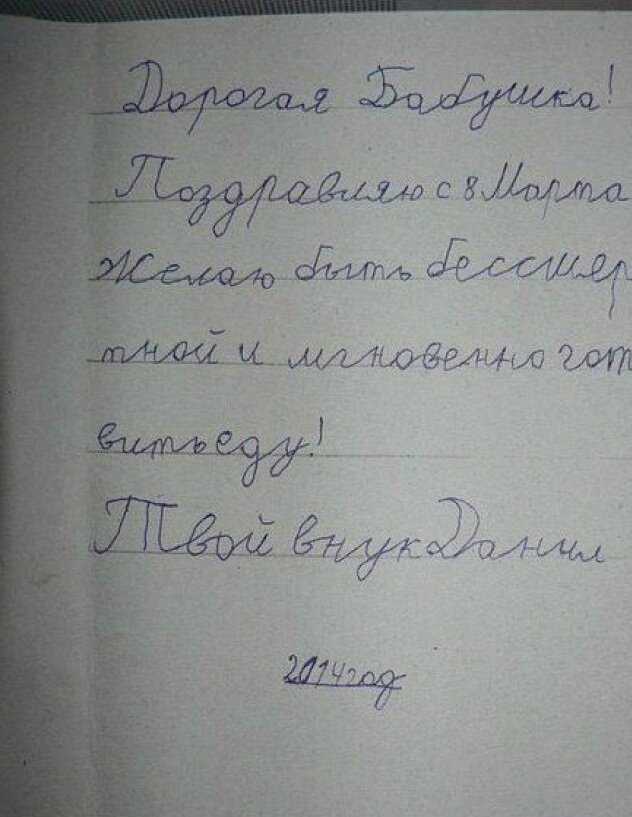 Дорогая Бабушка!
Поздравляю с 8 Марта
Желаю быть бессмер
тной и мгновенно гот
вить еду!
Твой внук Данил
2014 год